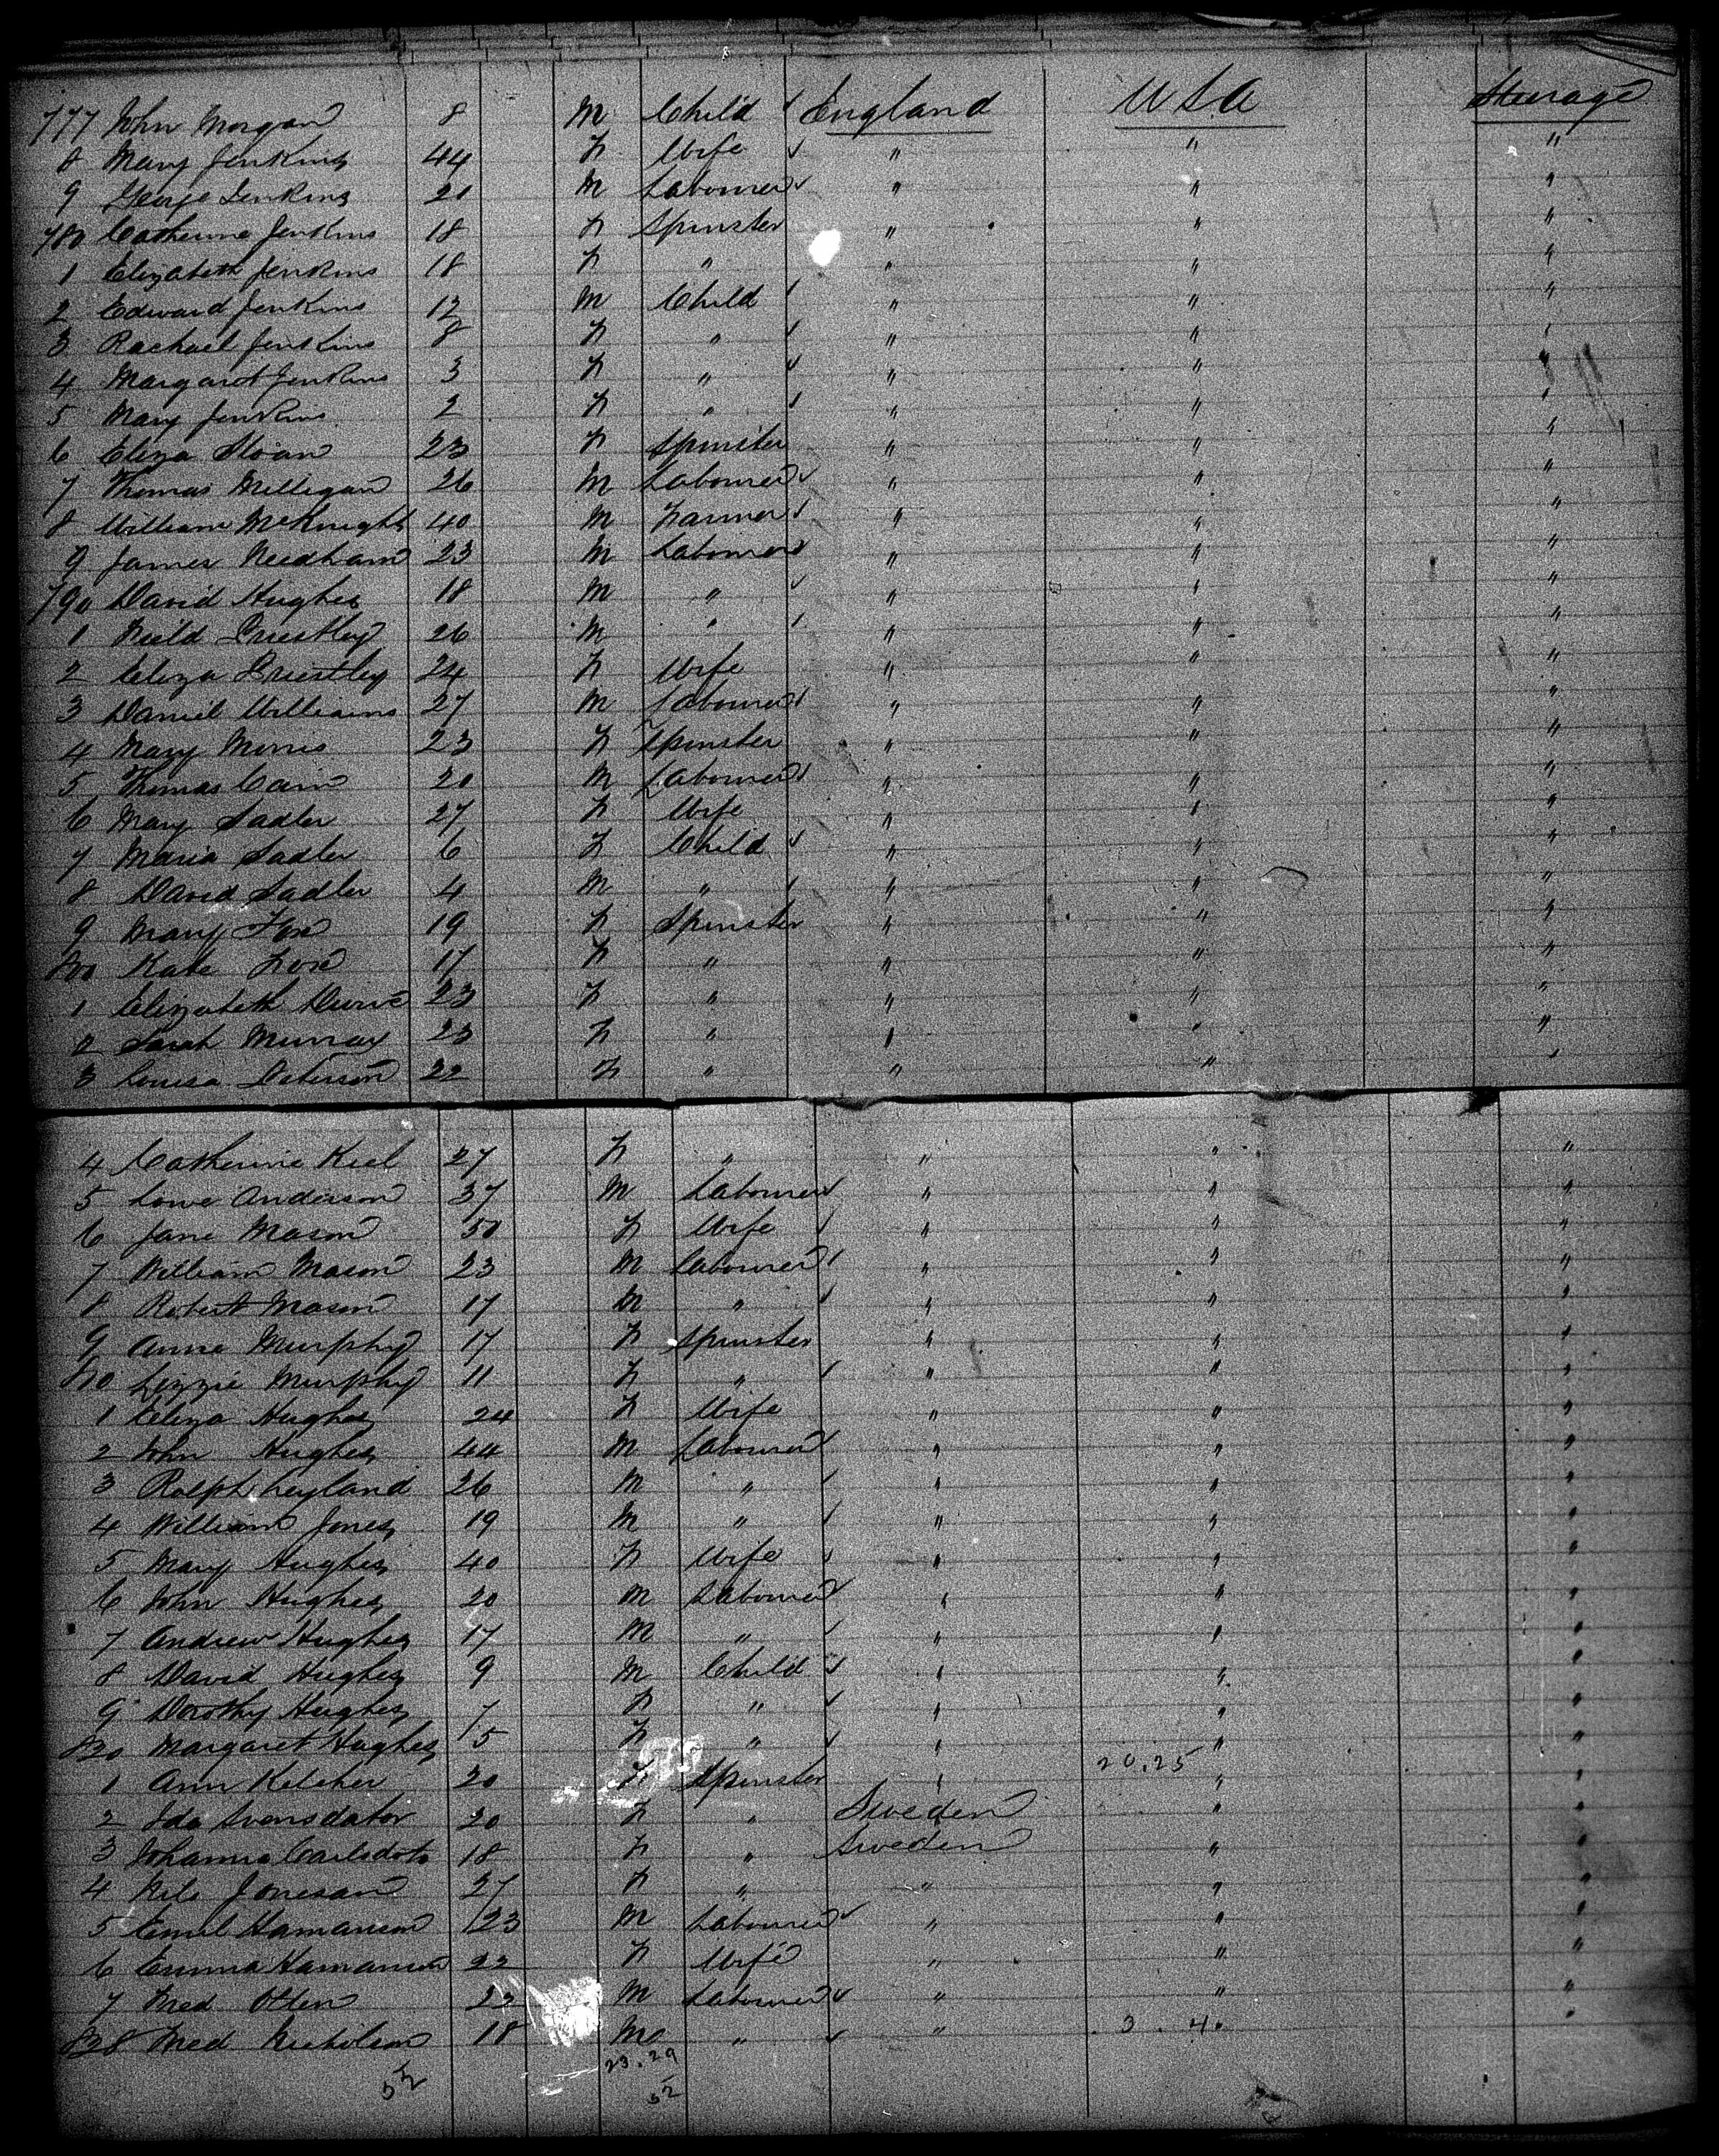 777 John Morgan 8 M Child ✓ England U S A Steerage
8 Mary Jenkins 44 F Wife ✓ " " "
9 George Jenkins 20 M Labourer ✓ " " "
780 Catherine Jenkins 18 F Spinster " " "
1 Elizabeth Jenkins 18 F " " " "
2 Edward Jenkins 12 M Child ✓ " " "
3 Rachael Jenkins 8 F " ✓ " " "
4 Margaret Jenkins 3 F " ✓ " " "
5 Mary Jenkins 2 F " ✓ " " "
6 Eliza Sloan 23 F Spinster " " "
7 Thomas Milligan 26 M Labourer ✓ " " "
8 William McKnight 40 M Farmer ✓ " " "
9 James Needham 23 M Labourer ✓ " " "
790 David Hughes 18 M " ✓ " " "
1 Neild Priestley 26 M " ✓ " " "
2 Eliza Priestley 24 F Wife " " "
3 Daniel Williams 27 M Labourer ✓ " " "
4 Mary Morris 23 F Spinster " " "
5 Thomas Cain 20 M Labourer ✓ " " "
6 Mary Sadler 27 F Wife " " "
7 Maria Sadler 6 F Child ✓ " " "
8 David Sadler 4 M " ✓ " " "
9 Mary Fox 19 F Spinster " " "
800 Kate Fox 17 F " " " "
1 Elizabeth 23 F " " " "
2 Sarah Murray 23 F " " " "
3 Louisa Peterson 22 F " " " "
4 Catherine Keel 27 F " " " "
5 Lowe Anderson 37 M Labourer ✓ " " "
6 Jane Mason 50 F Wife ✓ " " "
7 William Mason 23 M Labourer ✓ " " "
8 Robert Mason 17 M " ✓ " " "
9 Anne Murphy 17 F Spinster " " "
810 Lizzie Murphy 11 F " ✓ " " "
1 Eliza Hughes 24 F Wife " " "
2 John Hughes 44 M Labourer ✓ " " "
3 Ralph Leyland 26 M " ✓ " " "
4 William Jones 19 M " ✓ " " "
5 Mary Hughes 40 F Wife ✓ " " "
6 John Hughes 20 M Labourer ✓ " " "
7 Andrew Hughes 17 M " ✓ " " "
8 David Hughes 9 M Child ✓ " " "
9 Dorothy Hughes 7 F " ✓ " " "
820 Margaret Hughes 5 F " ✓ " " "
20.25
1 Ann Keleher 20 F Spinster " " "
2 Ida Svensdator 20 F " Sweden " "
3 Johanna Carlsdotr 18 F " Sweden " "
4 Nils Jonesan 27 F " " " "
5 Emil Hamanson 23 M Labourer ✓ " " "
6 Emma Hamanson 22 F Wife " " "
7 Fred Otten 23 M Labourer ✓ " " "
828 Fred Nicholson 18 M " ✓ " 3 . 4 " "
23.29
52 52